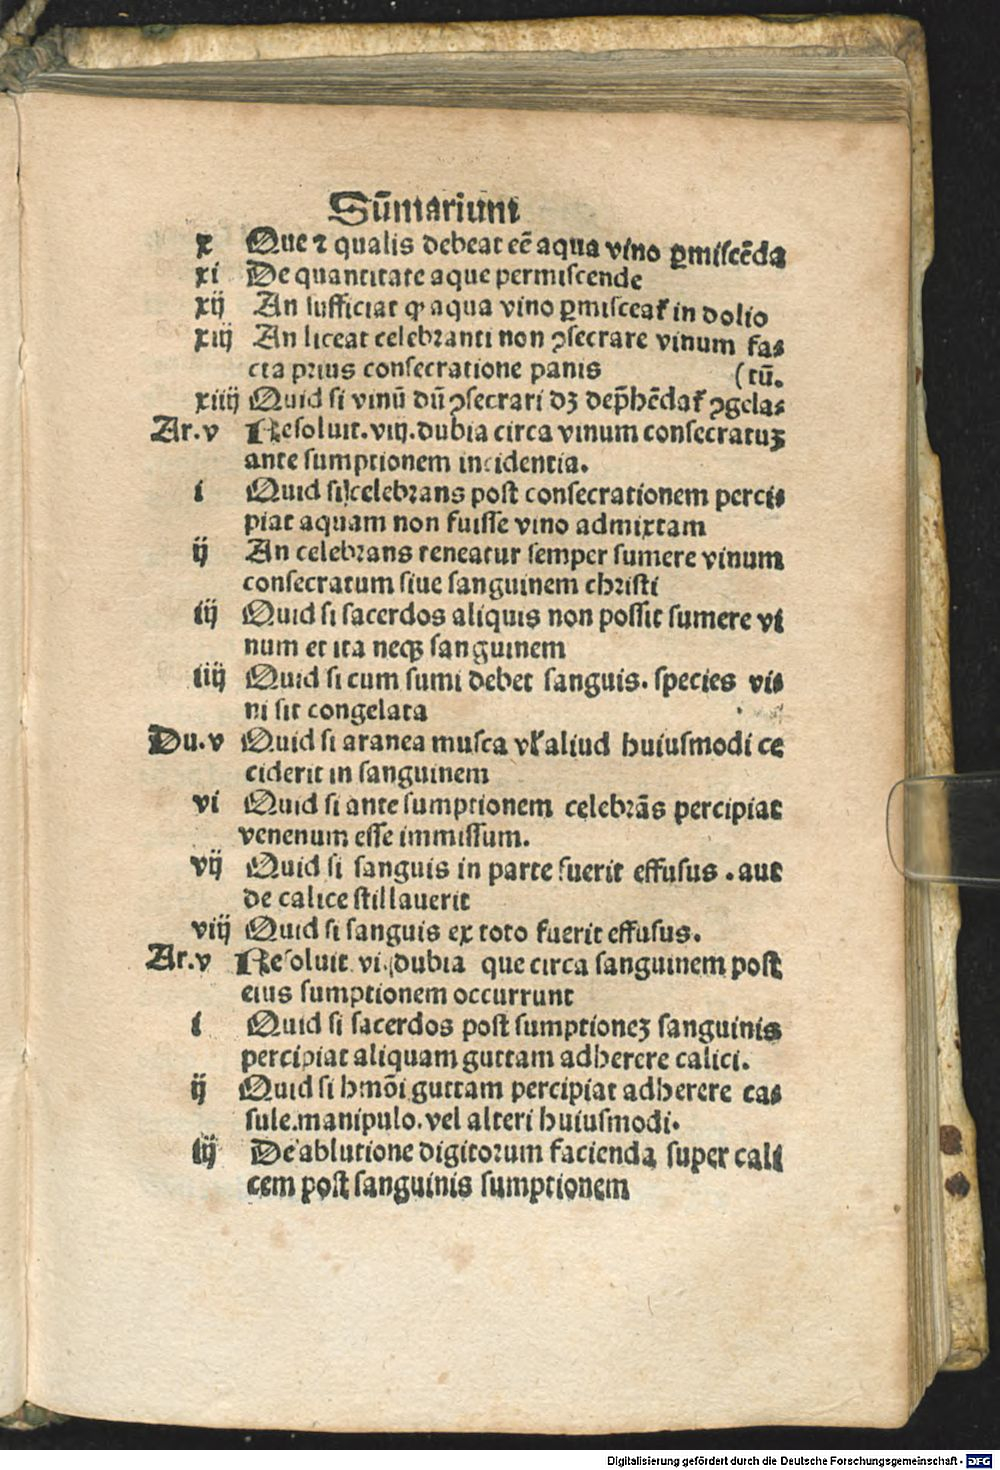 Sūmarium
x Que ⁊ qualis debeat eē aqua vino ꝑmiscēda
xi De quantitate aque permiscende
xij An sufficiat ꝙ aqua vino ꝑmisceaꝉ in dolio
xiij An liceat celebranti non ꝯsecrare vinum fa⸗
cta prius consecratione panis (tū.
xiiij Quid si vinū dū ꝯsecrari dꝫ dep̄hēdaꝉ ꝯgela⸗
Ar.v Resoluit.viij.dubia circa vinum consecratuꝫ
ante sumptionem incidentia.
i Quid si celebrans post consecrationem perci⸗
piat aquam non fuisse vino admixtam
ij An celebrans teneatur semper sumere vinum
consecratum siue sanguinem christi
iij Quid si sacerdos aliquis non possit sumere vi
num et ita neqꝫ sanguinem
iiij Quid si cum sumi debet sanguis. species vi⸗
ni sit congelata
Du.v Quid si aranea musca vꝉ aliud huiusmodi ce
ciderit in sanguinem
vi Quid si ante sumptionem celebrās percipiat
venenum esse immissum.
vij Quid si sanguis in parte fuerit effusus . aut
de calice stillauerit
viij Quid si sanguis ex toto fuerit effusus.
Ar.v Resoluit vi. dubia que circa sanguinem post
eius sumptionem occurrunt
i Quid si sacerdos post sumptioneꝫ sanguinis
percipiat aliquam guttam adherere calici.
ij Quid si hmōi guttam percipiat adherere ca⸗
sule.manipulo.vel alteri huiusmodi.
iij De ablutione digitorum facienda super cali
cem post sanguinis sumptionem
Digitalisierung gefördert durch die Deutsche Forschungsgemeinschaft - DFG